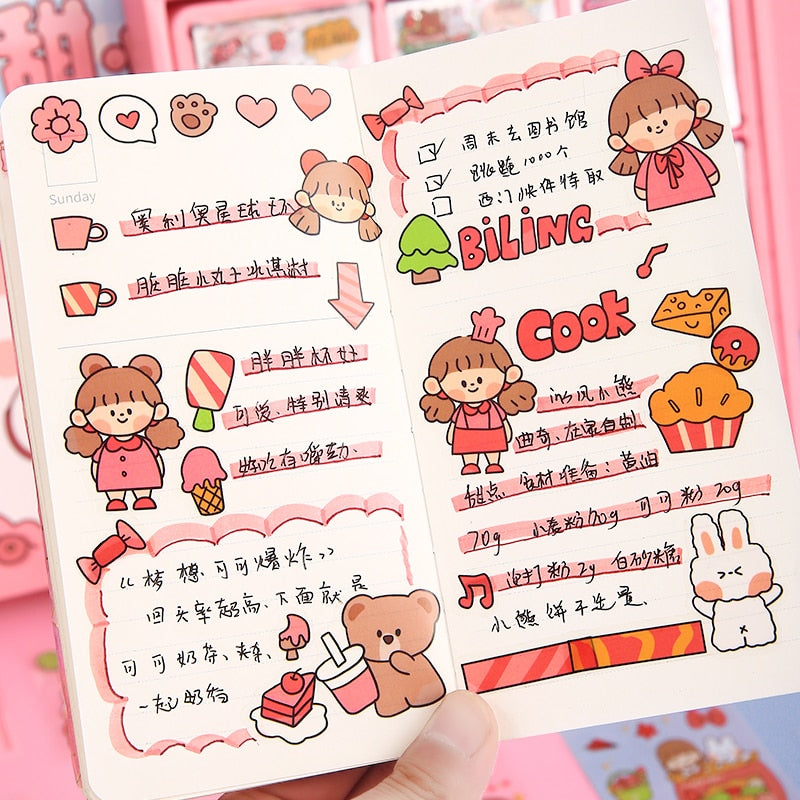 甜
Sunday
奥利奥星球杯
脏脏小丸子冰淇淋
胖胖杯好
可爱、特别清爽
特吃有嚼劲、
“梦想、可可爆炸”
回头率超高、下面就是
可可奶茶、
一起
周末去图书馆
跳绳1000个
西门快件待取
BiLiNG
COOK
小熊
曲奇、在家自制
甜点 食材准备：黄油
70g 小麦粉 可可粉 20g
泡打粉 2g 白砂糖
小熊饼干